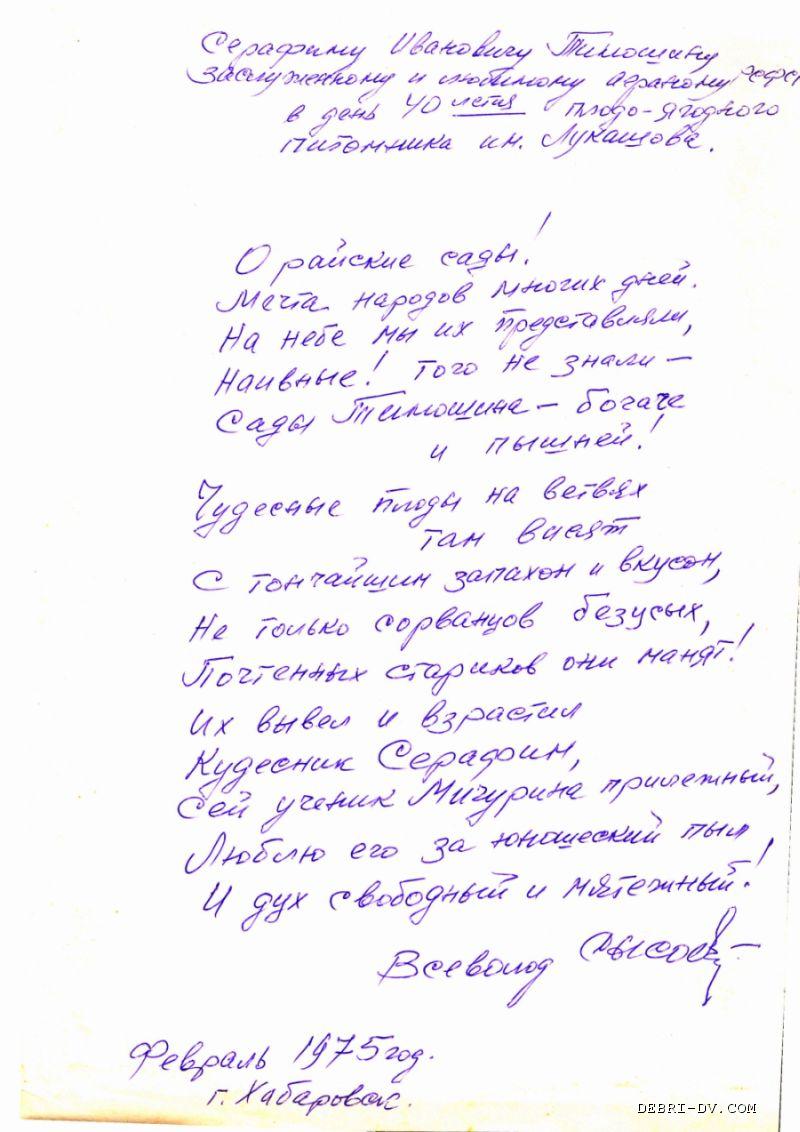 Серафиму Ивановичу Тимошину
Заслуженному и любимому агроному РСФСР
в день 40 летия плодо-ягодного
питомника им. Лукашова.
О райские сады!
Мечта народов многих дней.
На небе мы их представляли,
Наивные! Того не знали —
Сады Тимошина — богаче
и пышней!
Чудесные плоды на ветвях
там висят
С тончайшим запахом и вкусом,
Не только сорванцов безусых,
Почтенных стариков они манят!
Их вывел и взрастил
Кудесник Серафим,
Сей ученик Мичурина прилежный,
Люблю его за юношеский пыл
И дух свободный и мятежный!
Всеволод Сысоев
Февраль 1975 год.
г. Хабаровск.
DEBRI-DV.COM